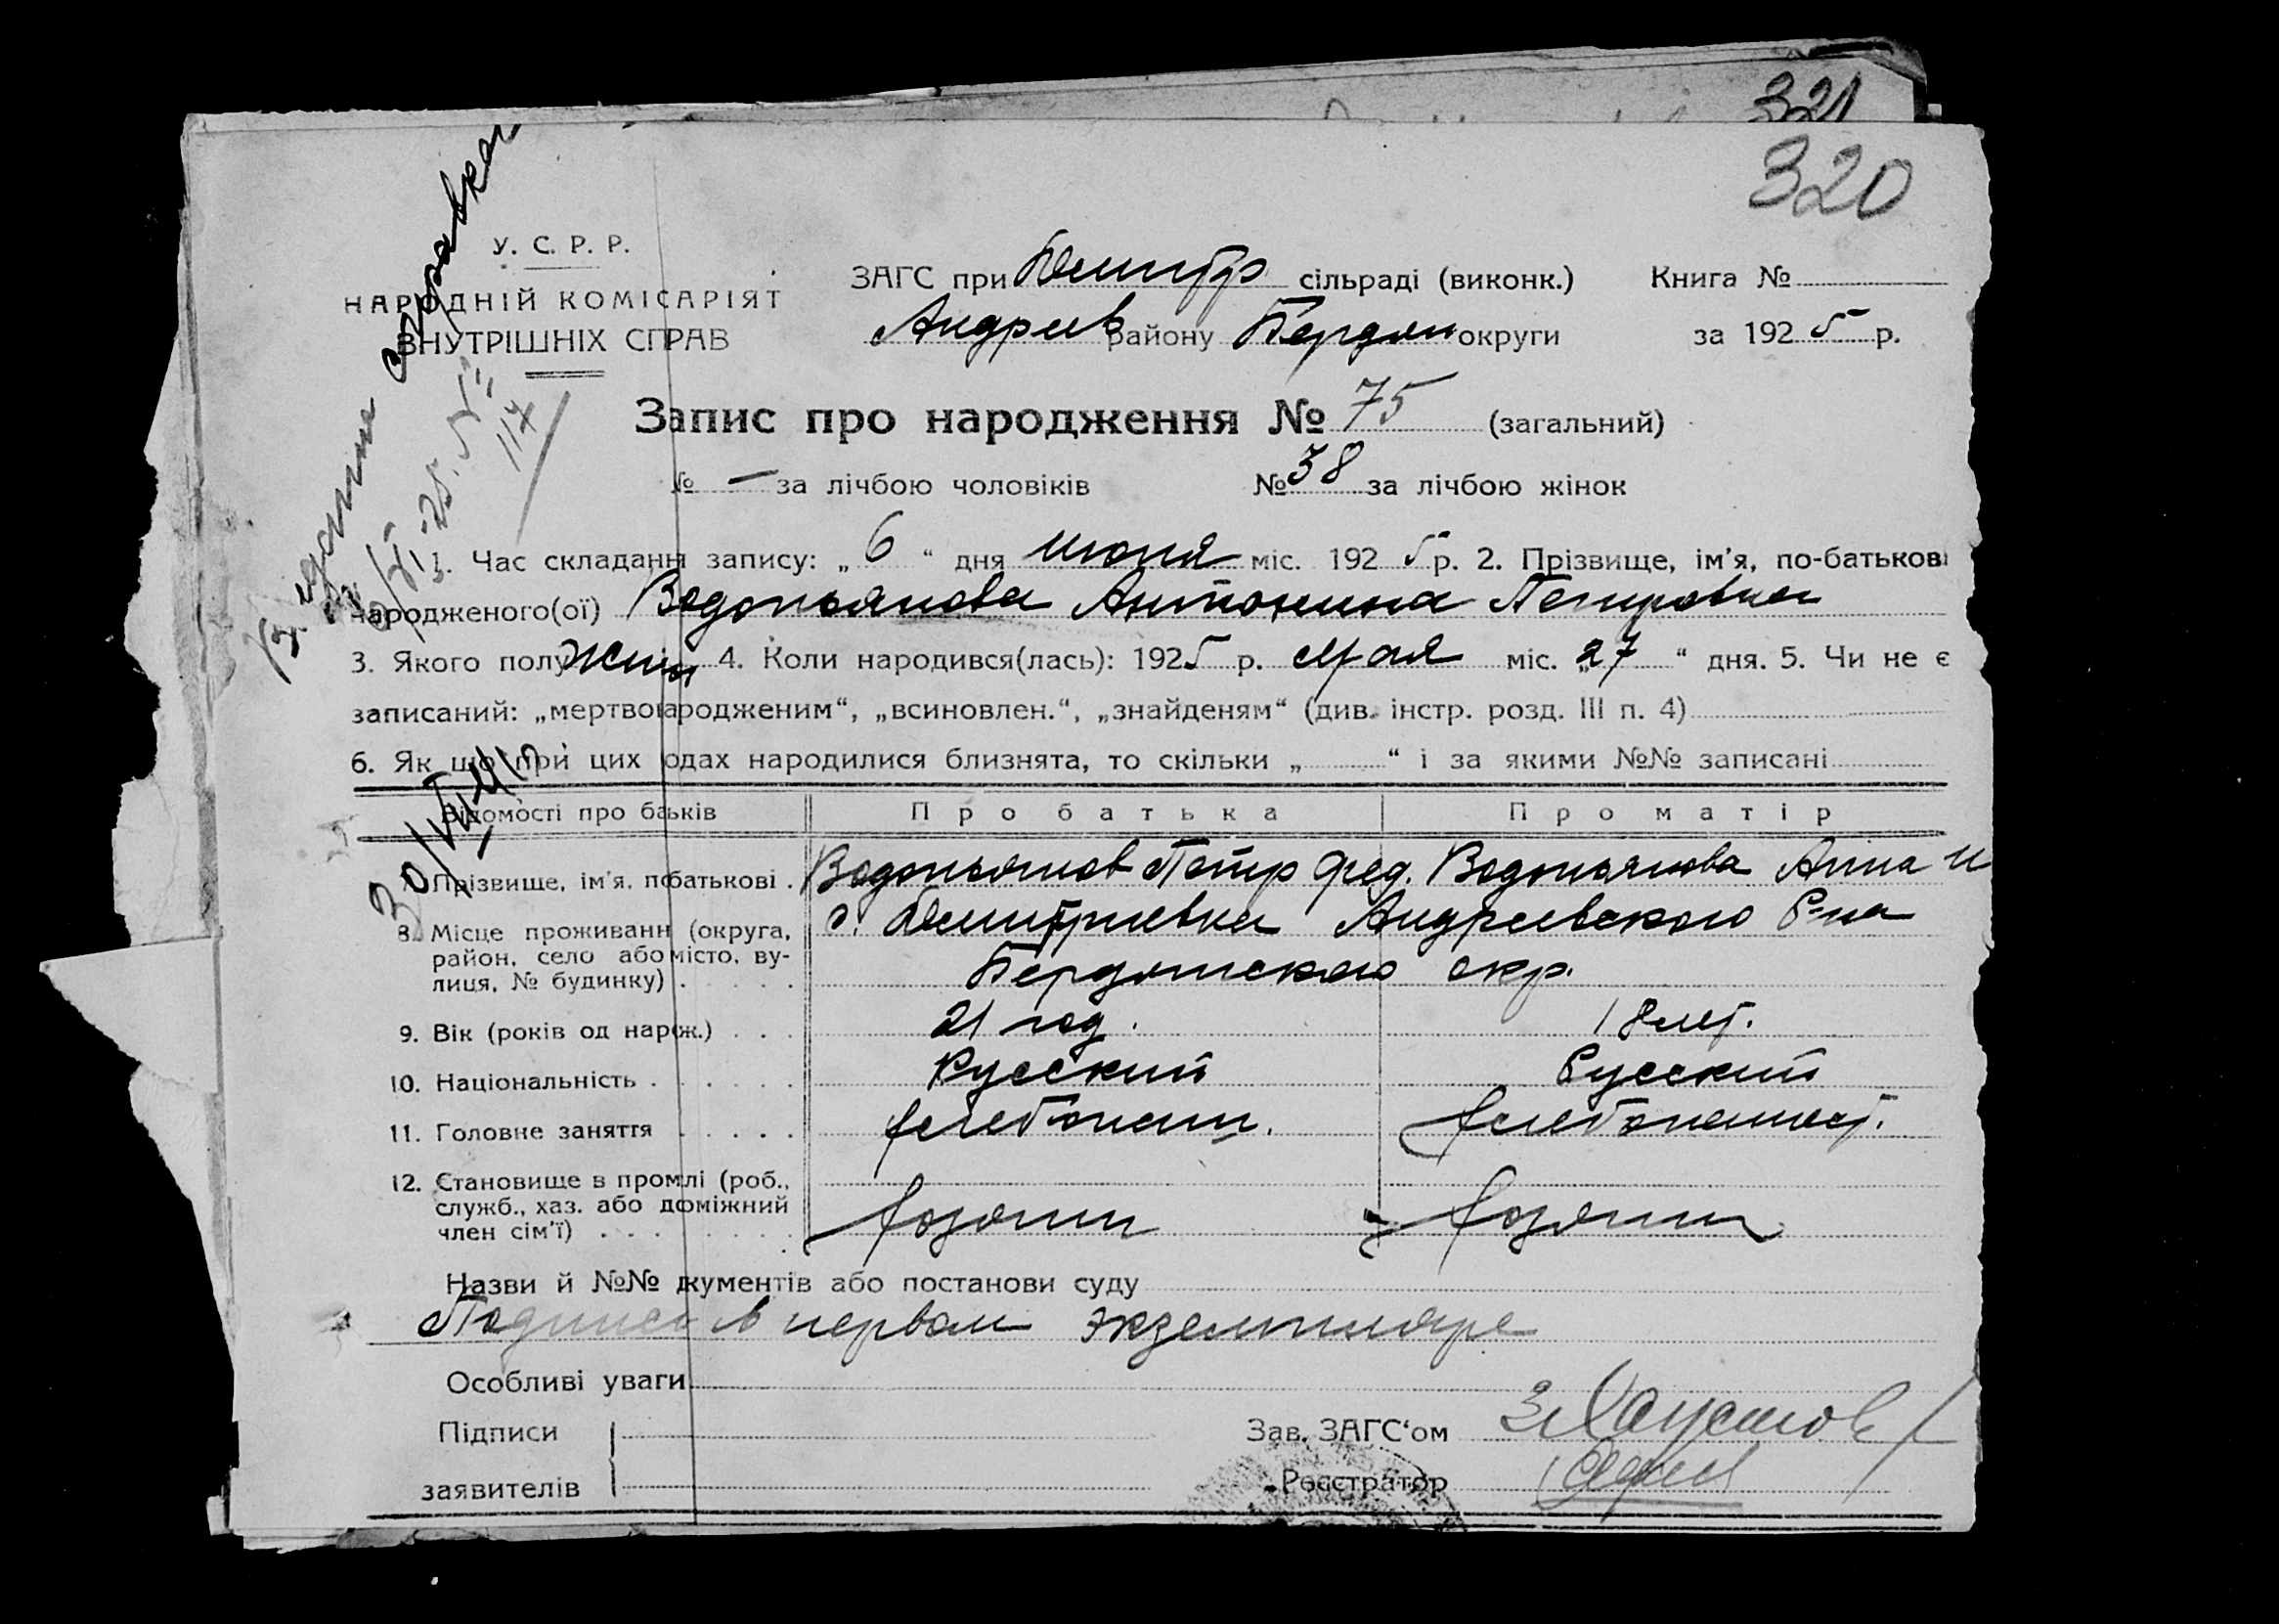 321
320
У. С. Р. Р.
НАРОДНІЙ КОМІСАРІЯТ
ВНУТРІШНІХ СПРАВ
ЗАГС при Дмитр сільраді (виконк.) Книга №
Андреев району Бердян округи за 1925 р.
Запис про народження № 75 (загальний)
№ — за лічбою чоловіків № 38 за лічбою жінок
1. Час складання запису: „ 6 “ дня июня міс. 1925 р. 2. Прізвище, ім'я, по-батькові
народженого(ої) Водопьянова Антонина Петровна
3. Якого полу жин 4. Коли народився(лась): 1925 р. мая міс. „27 “ дня. 5. Чи не є
записаний: „мертвонародженим“, „всиновлен.“, „знайденям“ (див. інстр. розд. III п. 4)
6. Як що при цих родах народилися близнята, то скільки „ “ і за якими №№ записані
Відомості про батьків Про батька Про матір
7. Прізвище, ім'я, по батькові . Водопьянов Петр Фед. Водопьянова Анна И
8. Місце проживання (округа, с. Дмитриевка Андреевского Р-на
район, село або місто, ву-
лиця, № будинку) . Бердянского окр.
9. Вік (років од нарож.) . . . 21 год. 18 лет.
10. Національність . Русский Русский
11. Головне заняття хлебопаш. хлебопашест.
12. Становище в промислі (роб.,
служб., хаз. або допоміжний
член сім'ї) хозяин хозяин
Назви й №№ документів або постанови суду
Подписи в первом экземпляре
Особливі уваги
Підписи Зав. ЗАГС‘ом
заявителів Реєстратор